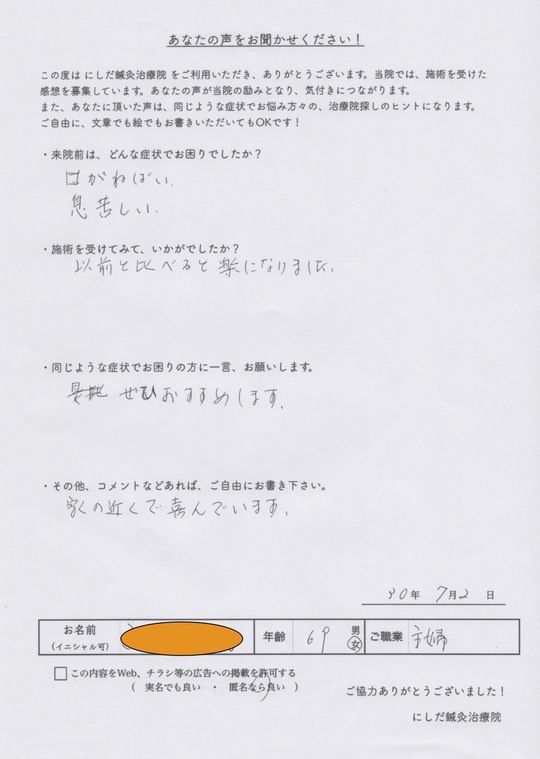 あなたの声をお聞かせください！
この度は にしだ鍼灸治療院 をご利用いただき、ありがとうございます。当院では、施術を受けた
感想を募集しています。あなたの声が当院の励みとなり、気付きにつながります。
また、あなたに頂いた声は、同じような症状でお悩み方々の、治療院探しのヒントになります。
ご自由に、文章でも絵でもお書きいただいてもOKです！
・来院前は、どんな症状でお困りでしたか？
口がねばい、
息苦しい、
・施術を受けてみて、いかがでしたか？
以前と比べると楽になりました、
・同じような症状でお困りの方に一言、お願いします。
ぜひおすすめします、
・その他、コメントなどあれば、ご自由にお書き下さい。
家の近くで喜んでいます、
30年 7月2 日
お名前
（イニシャル可）
年齢 69 男 女 ご職業 主婦
この内容をWeb、チラシ等の広告への掲載を許可する
（ 実名でも良い ・ 匿名なら良い ）
ご協力ありがとうございました！
にしだ鍼灸治療院